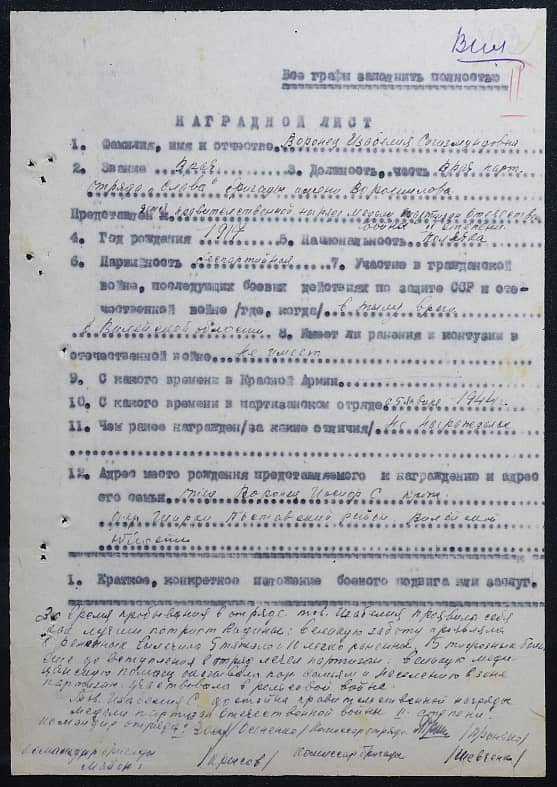 Все графы заполнить полностью
II
НАГРАДНОЙ ЛИСТ
1. Фамилия, имя и отчество Воронец Изабелия Сигизмундовна
2. Звание Врач 3. Должность, часть Врач парт.
отряда "Слава" бригады имени Ворошилова
Представлен к правительственной награде медаль Партизан Отечествен.
войны II степени.
4. Год рождения 1917 5. Национальность полячка
6. Партийность беспартийная 7. Участие в гражданской
войне, последующих боевых действиях по защите СССР и оте-
чественной войне /где, когда/ в тылу врага
в Вилейской области 8. Имеет ли ранения и контузии в
отечественной войне не имеет
9. С какого времени в Красной Армии
10. С какого времени в партизанском отряде 1944 г.
11. Чем ранее награжден/за какие отличия/ не награждалась
12. Адрес место рождения представляемого к награждению и адрес
его семьи Воронец С
Ширки Поставский район Вилейской
области
1. Краткое, конкретное изложение боевого подвига или заслуг.
За время пребывания в отряде тов. Изабелия проявила себя
как лучший патриот Родины: большую заботу проявляла
о раненых вылечила 5 тяжело 10 легко раненых, 15 тифозных боль.
Еще до вступления в отряд лечила партизан. Большую меди-
цинскую помощь оказывала партизанам и населению в зоне
партизан. Участвовала в рельсовой войне.
Тов. С. достойна правительственной награды
медали партизан отечественной войны II степени.
Командир отряда Комиссар отряда
Командир бригады
майор: /Крысов/ Комиссар бригады /Шевченко/